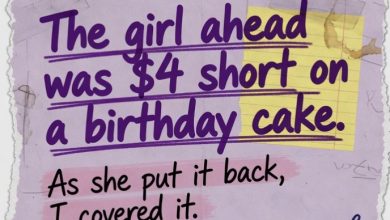 The girl ahead
was $4 short on
a birthday cake.
As she put it back,
I covered it.